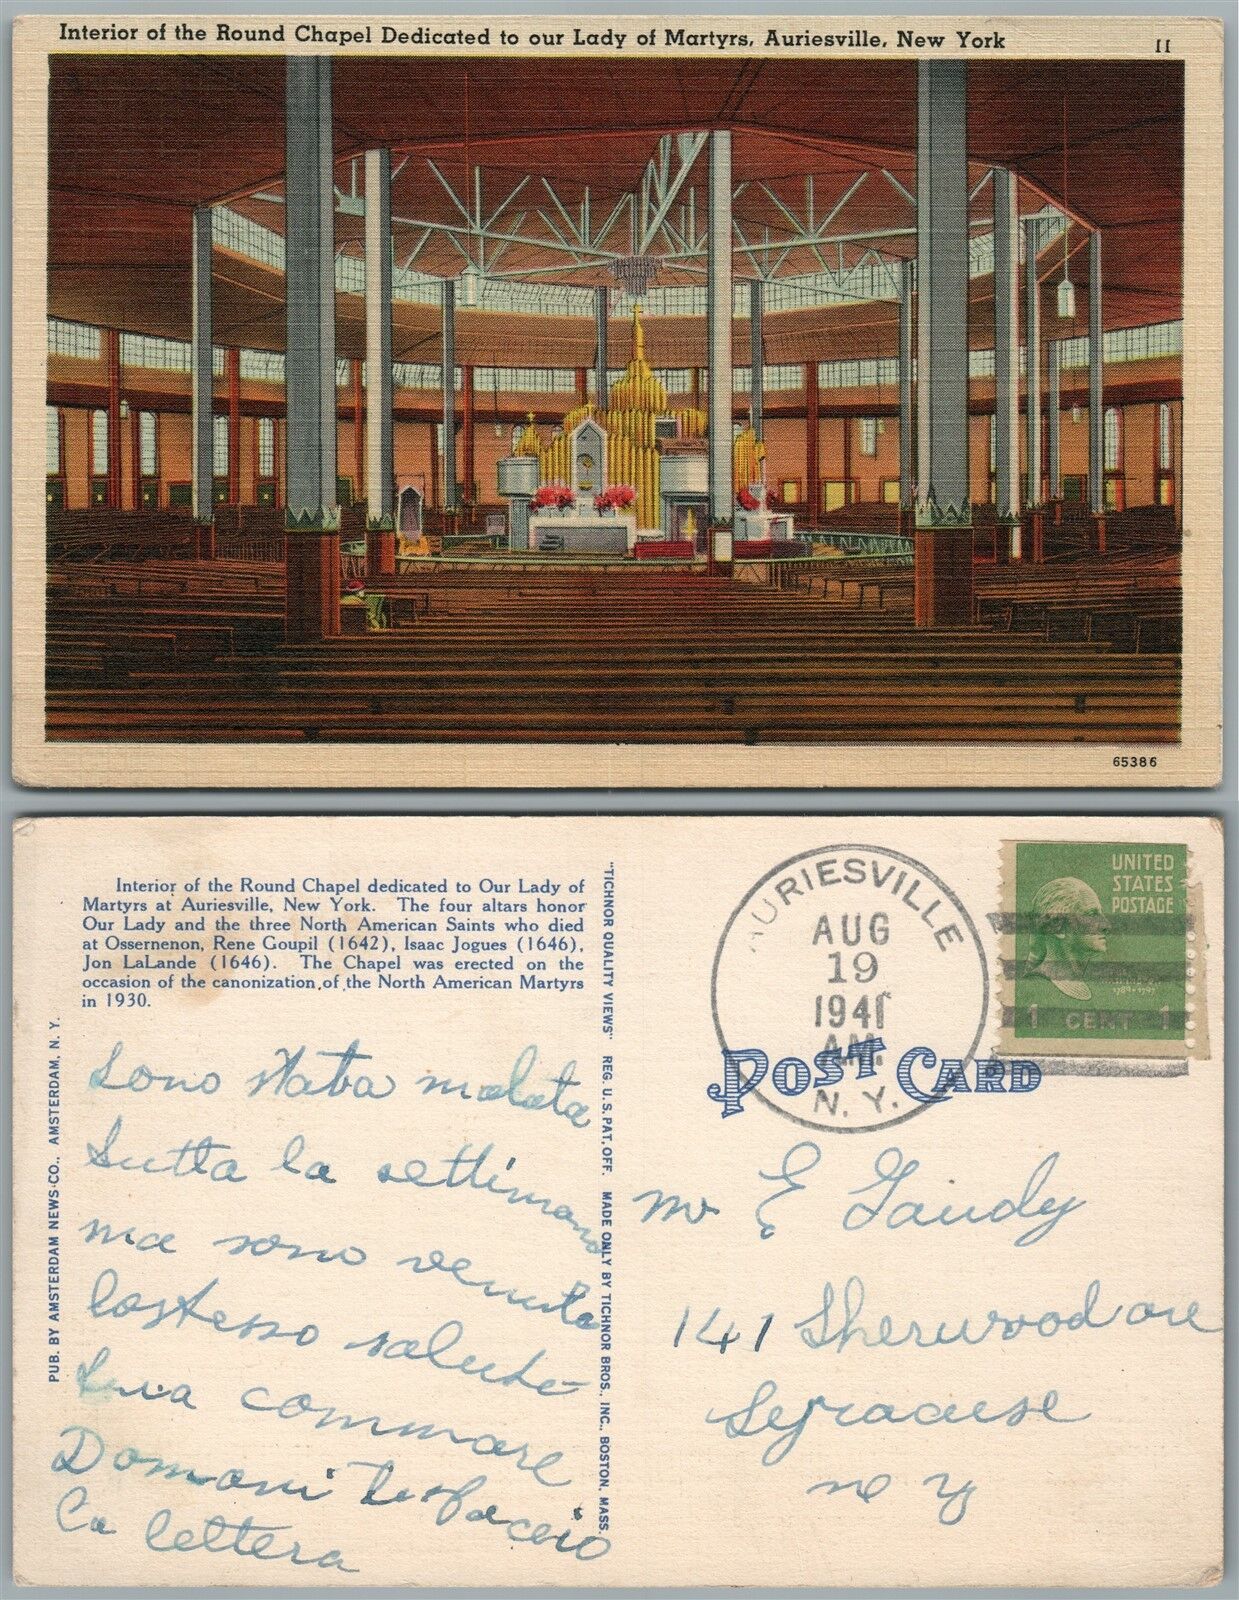 Interior of the Round Chapel Dedicated to our Lady of Martyrs, Auriesville, New York
11
65386
Interior of the Round Chapel dedicated to Our Lady of
Martyrs at Auriesville, New York. The four altars honor
Our Lady and the three North American Saints who died
at Ossernenon, Rene Goupil (1642), Isaac Jogues (1646),
Jon LaLande (1646). The Chapel was erected on the
occasion of the canonization of the North American Martyrs
in 1930.
PUB. BY AMSTERDAM NEWS CO., AMSTERDAM, N. Y.
"TICHNOR QUALITY VIEWS" REG. U.S. PAT. OFF. MADE ONLY BY TICHNOR BROS., INC., BOSTON, MASS.
AURIESVILLE
AUG
19
1941
A.M.
N. Y.
UNITED
STATES
POSTAGE
1789-1797
1 CENT 1
POST CARD
Sono stata malata
tutta la settimana
ma sono venuta
lostesso salute
tua commare
Domani te faccio
la lettera
Mr E Gaudy
141 Sherwood ave
Syracuse
N Y